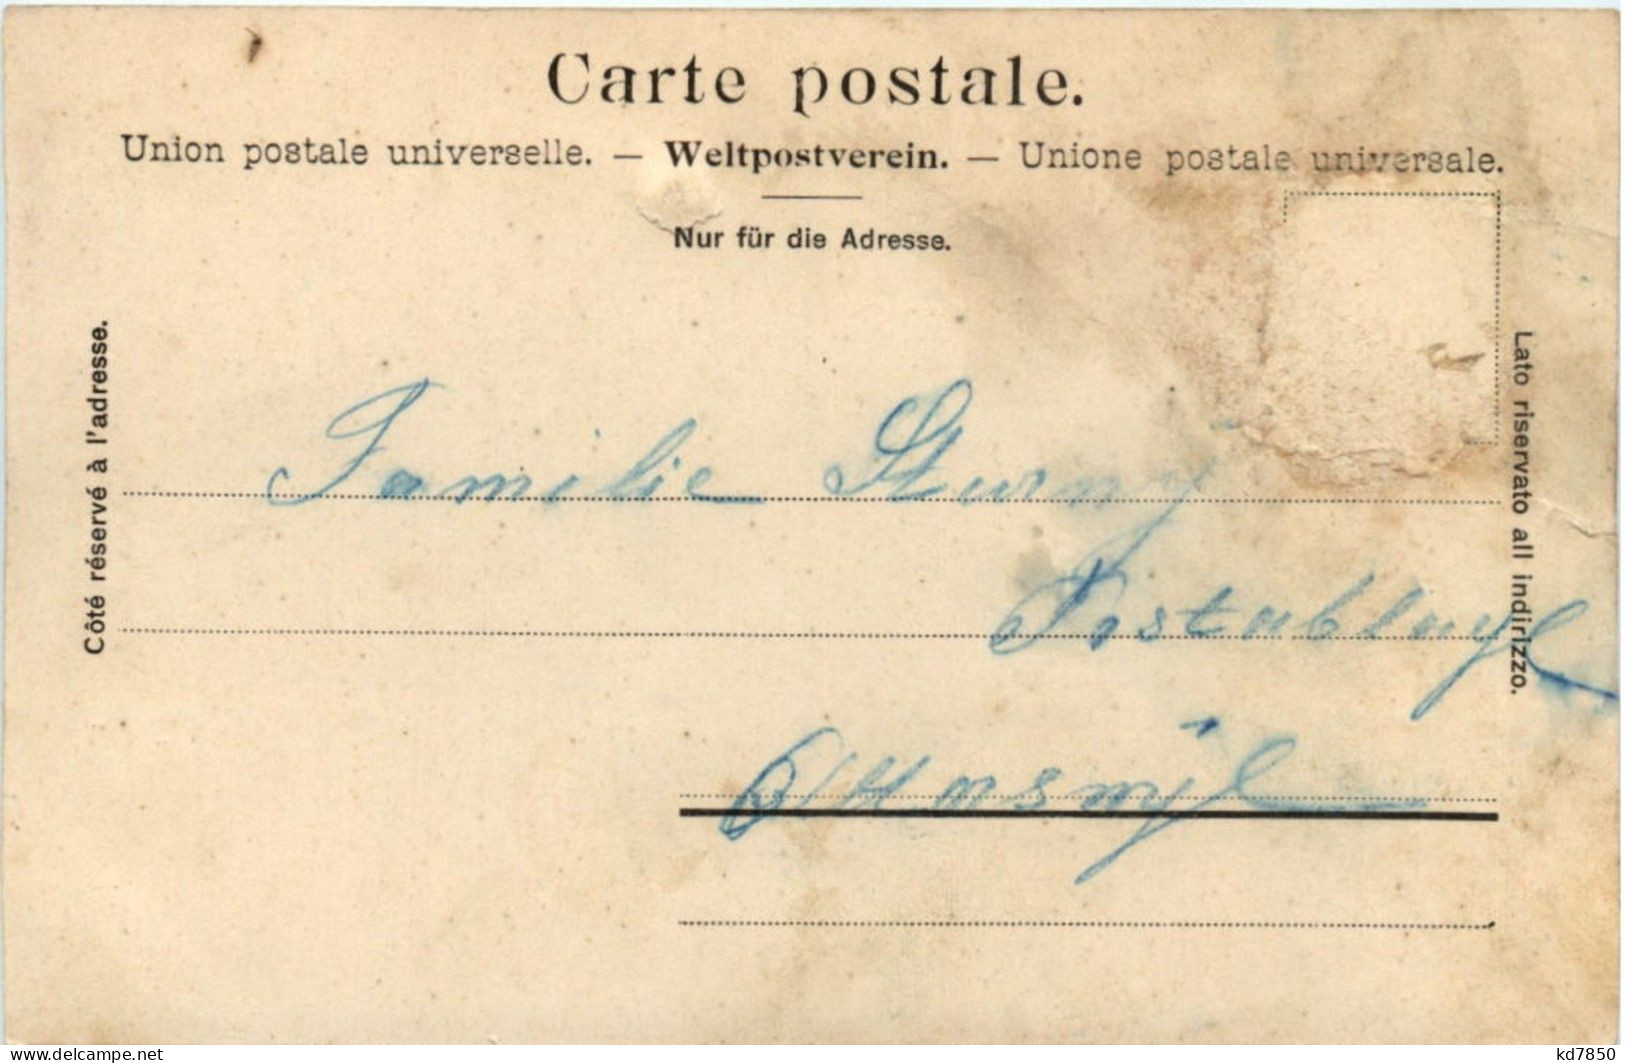 Carte postale.
Union postale universelle. — Weltpostverein. — Unione postale universale.
Nur für die Adresse.
Côté réservé à l'adresse.
Lato riservato all indirizzo.
Familie Sturny
www.delcampe.net
kd7850